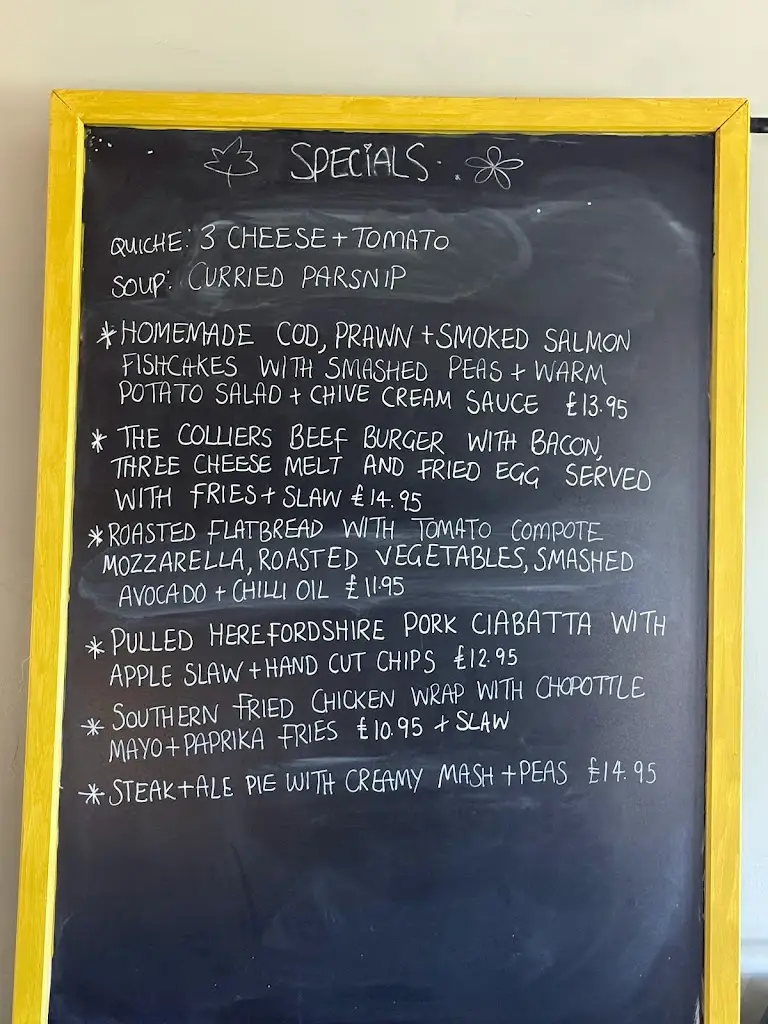 SPECIALS
QUICHE: 3 CHEESE + TOMATO
SOUP: CURRIED PARSNIP
* HOMEMADE COD, PRAWN + SMOKED SALMON
FISHCAKES WITH SMASHED PEAS + WARM
POTATO SALAD + CHIVE CREAM SAUCE £13.95
* THE COLLIERS BEEF BURGER WITH BACON,
THREE CHEESE MELT AND FRIED EGG SERVED
WITH FRIES + SLAW £14.95
* ROASTED FLATBREAD WITH TOMATO COMPOTE
MOZZARELLA, ROASTED VEGETABLES, SMASHED
AVOCADO + CHILLI OIL £11.95
* PULLED HEREFORDSHIRE PORK CIABATTA WITH
APPLE SLAW + HAND CUT CHIPS £12.95
* SOUTHERN FRIED CHICKEN WRAP WITH CHOPOTTLE
MAYO + PAPRIKA FRIES £10.95 + SLAW
* STEAK + ALE PIE WITH CREAMY MASH + PEAS £14.95